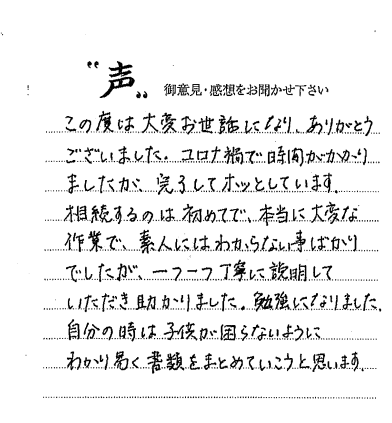 “声„ 御意見・感想をお聞かせ下さい
この度は大変お世話になり、ありがとう
ございました。コロナ禍で時間がかかり
ましたが、完了してホッとしています。
相続するのは初めてで、本当に大変な
作業で、素人にはわからない事ばかり
でしたが、一つ一つ丁寧に説明して
いただき助かりました。勉強になりました。
自分の時は子供が困らないように
わかり易く書類をまとめていこうと思います。